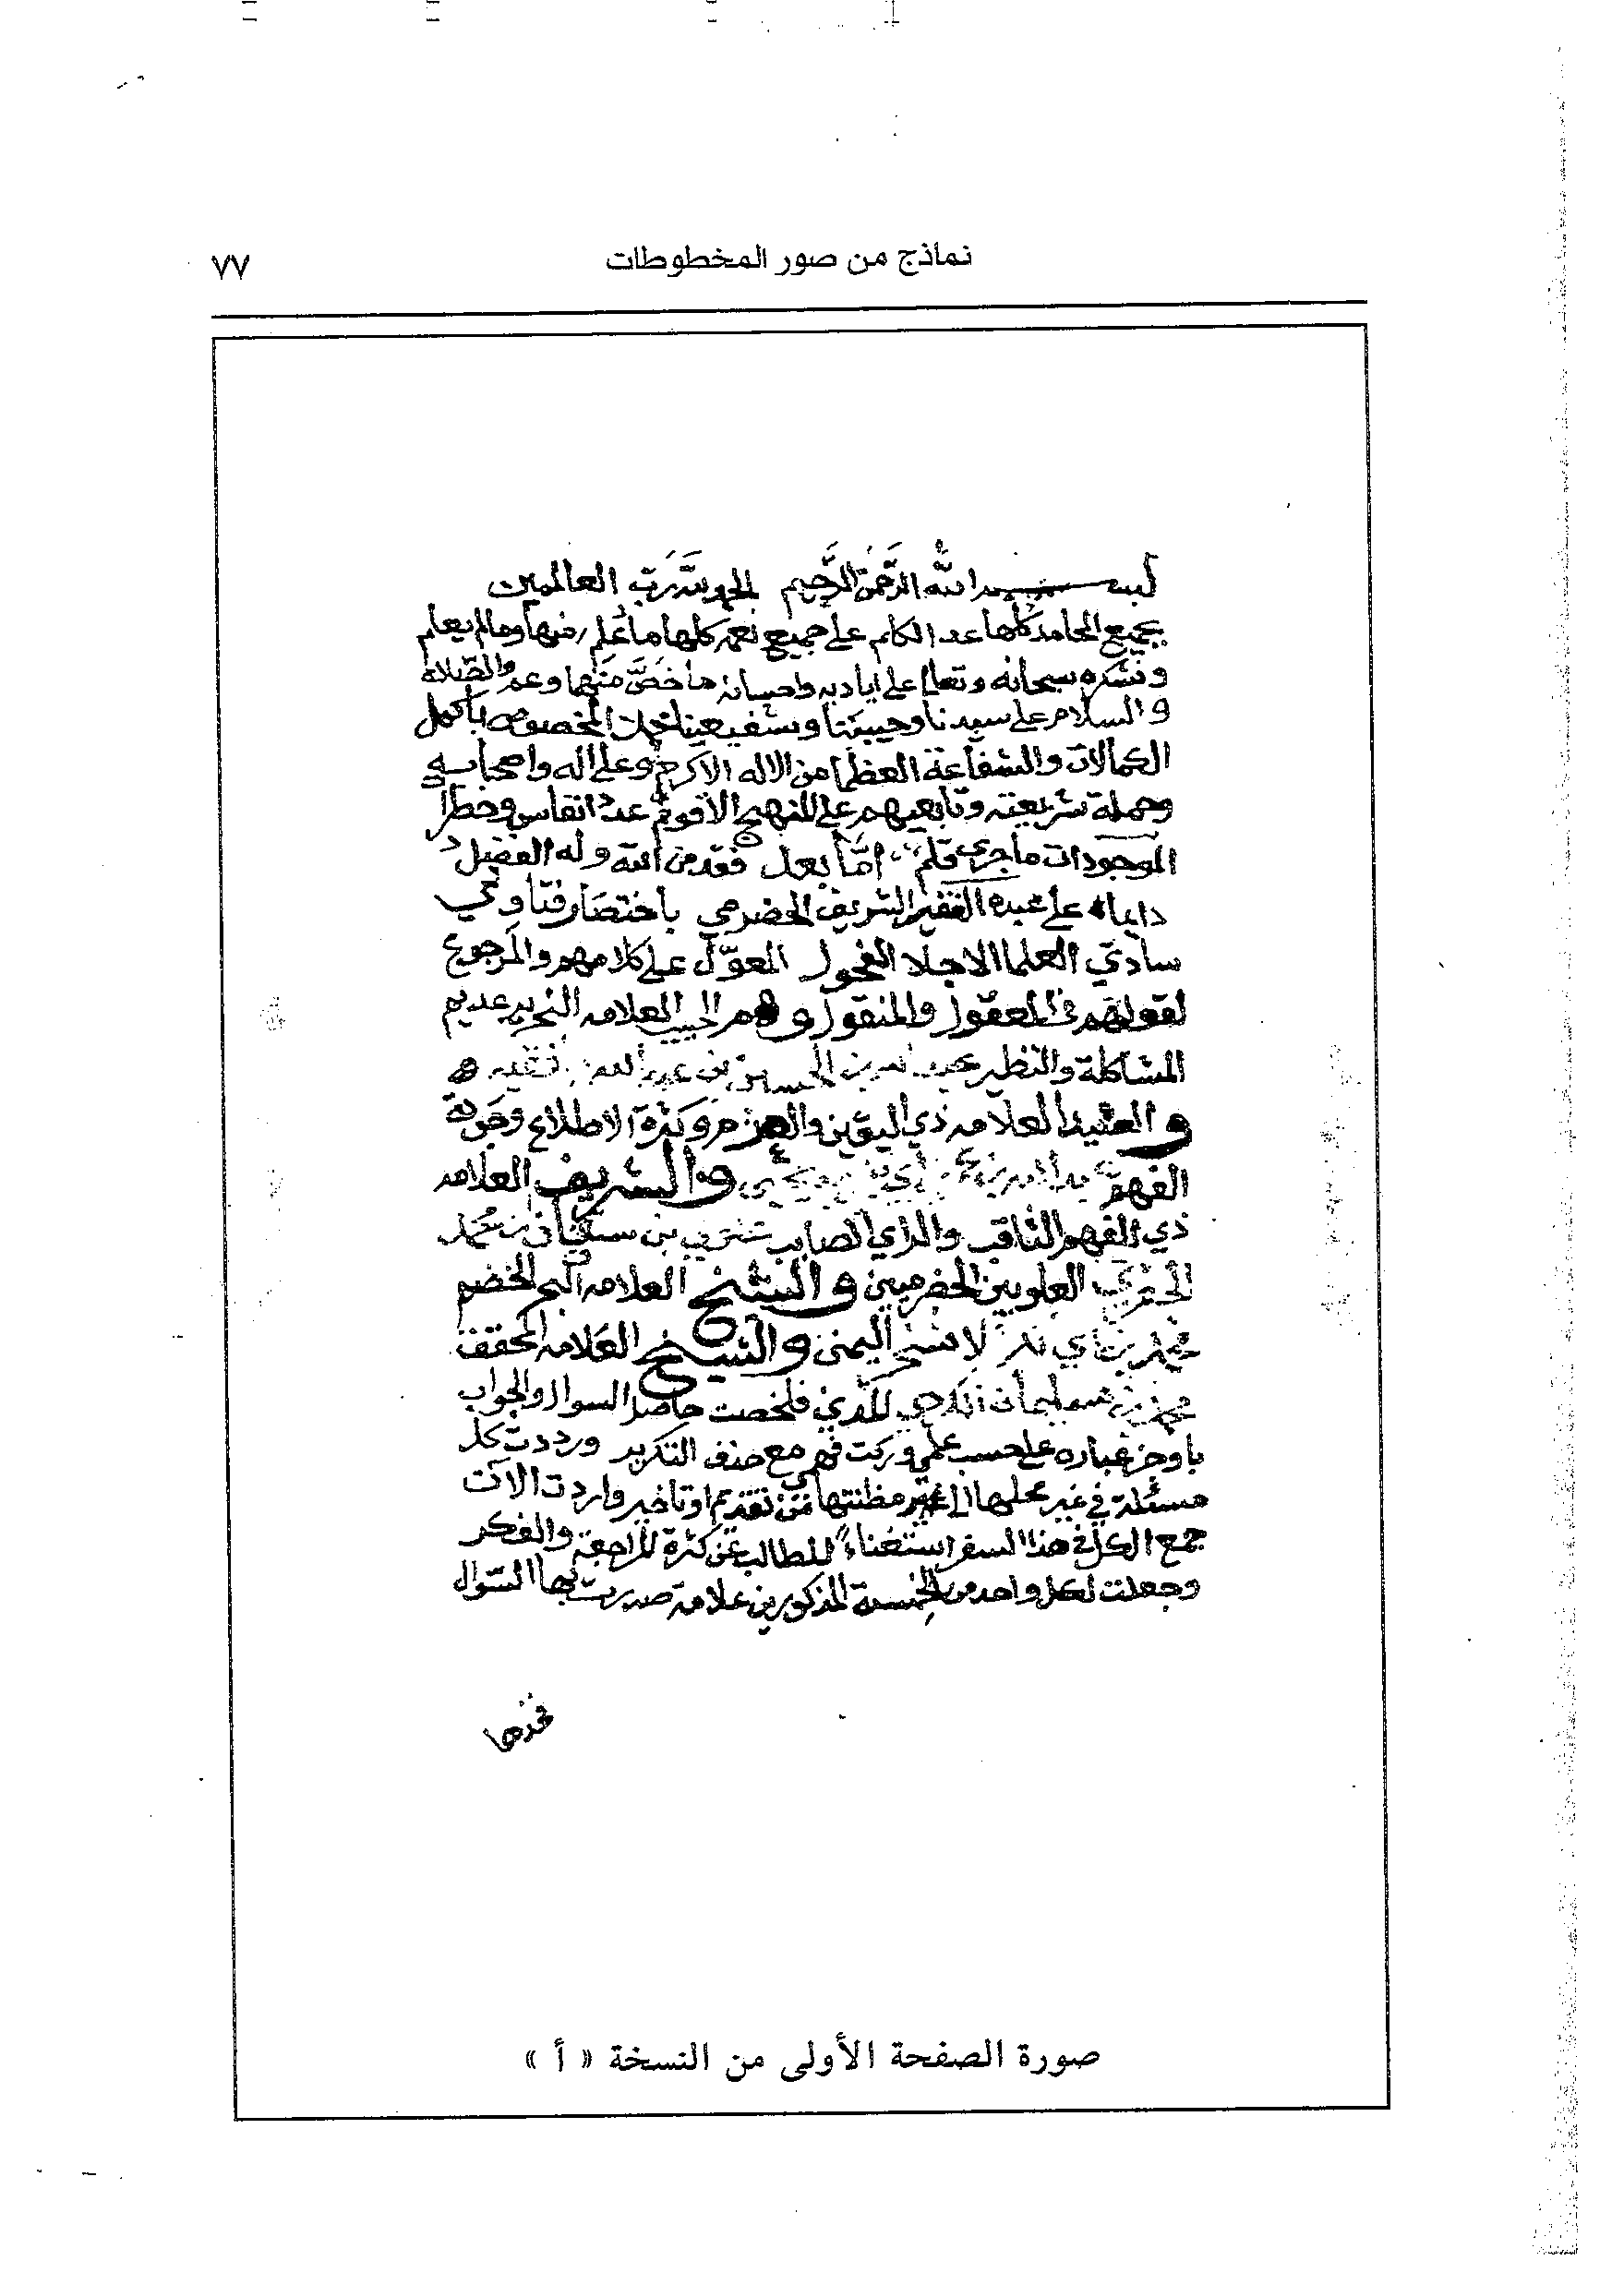 نماذج من صور المخطوطات
٧٧
بسم الله الرَّحمٰن الرَّحيم الحمد لله رَبّ العالمين
بجميع المحامد كلها عدد الكلم على جميع نعمه كلها ما عُلم منها ومالم يعلم
ونشكره سبحانه وتعالى على اياديه واحسانه ما خَصَّ منها وعم والصّلاة
والسلام على سيدنا وحبيبنا وشفيعنا المخصوص باكمل
الكمالات والشفاعة العظما من الاله الاكرم وعلى اله واصحابه
وحملة شريعته وتابعيهم على النهج الاقوم عدد انفاس وخطرا
الموجودات ماجرى قلم امّا بعد فقد من الله وله الفضل
دايما على عبده الفقير الشريف الحضرمي باختصار فتاوي
ساداتي العلما الاجلا الفحول المعوّل على كلامهم والمرجوع
لقولهم في المعقول والمنقول وهم الحبيب العلامه النحرير عديم
المشاكلة والنظير عبد الله بن الحسين بن عبد الله
والسيد العلامه ذي اليقين والعزم وكثرة الاطلاع وجودة
الفهم عبد الله بن بن يحيى والشريف العلامه
ذي الفهم الثاقب والراي الصايب بن محمد
الجفري العلويين الحضرميين والشيخ العلامه البحر الخضم
محمد بن ابي بكر الاشخر اليمني والشيخ العلامه المحقق
محمد بن سليمان الكردي المدني فلخصت حاصل السوال والجواب
باوجز عباره على حسب علمي وركت فهمي مع حذف التكرير ورددت كل
مسئلة في غير محلها الى مظنتها من تقديم او تاخير واردت الآن
جمع الكل في هذا السفر استغناءً للطالب عن كثرة المراجعة والفكر
وجعلت لكل واحد من الخمسة المذكورين علامة صدرت بها السّوال
صورة الصفحة الأولى من النسخة « أ »